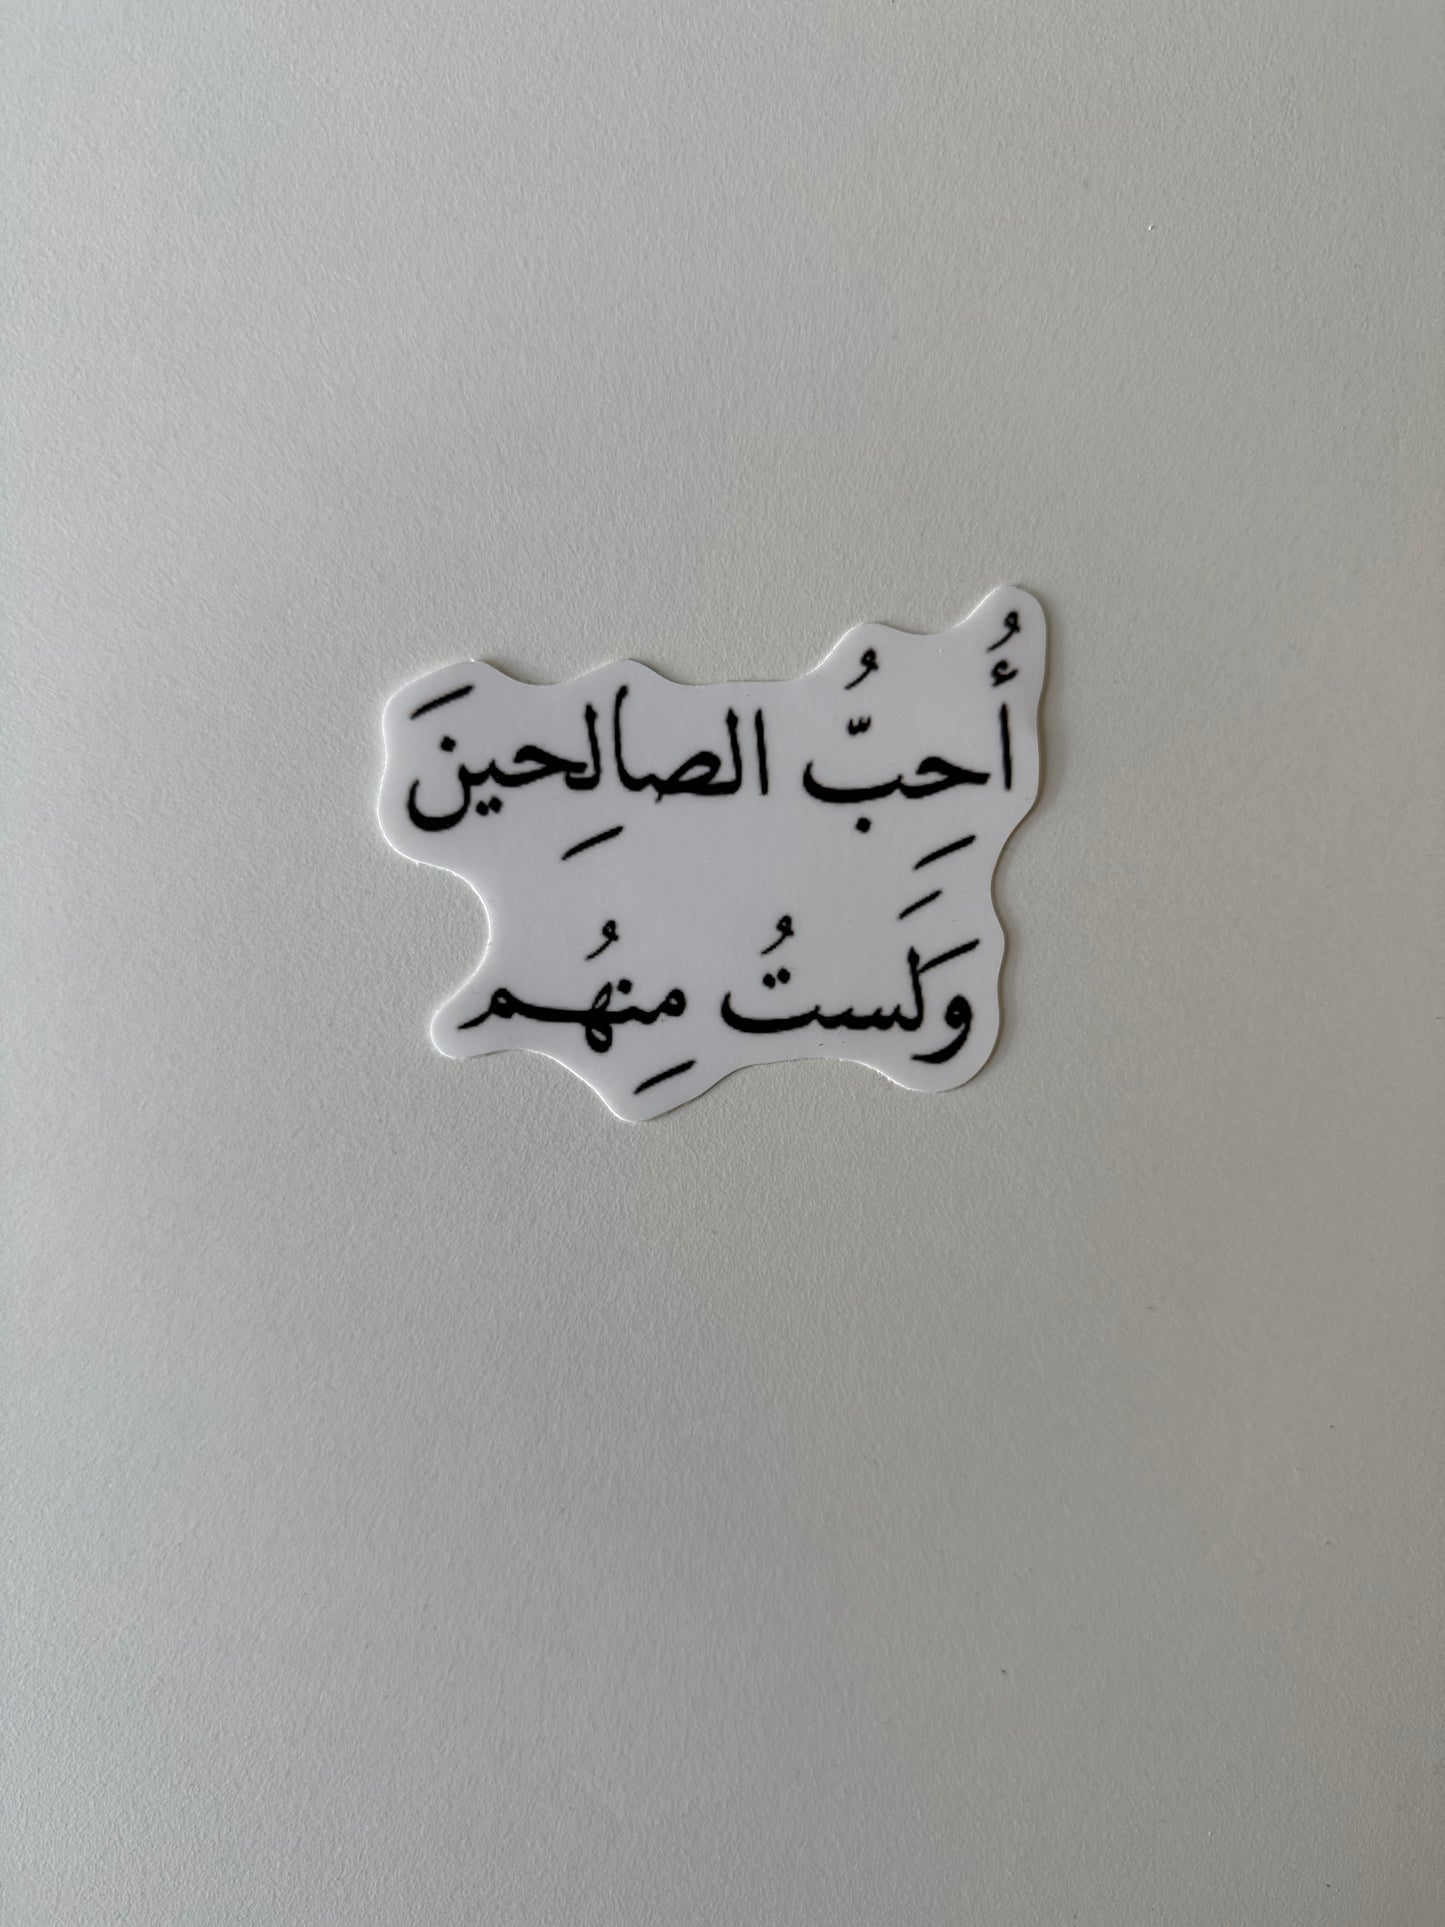 أُحِبُّ الصالِحينَ
وَلَستُ مِنهُم